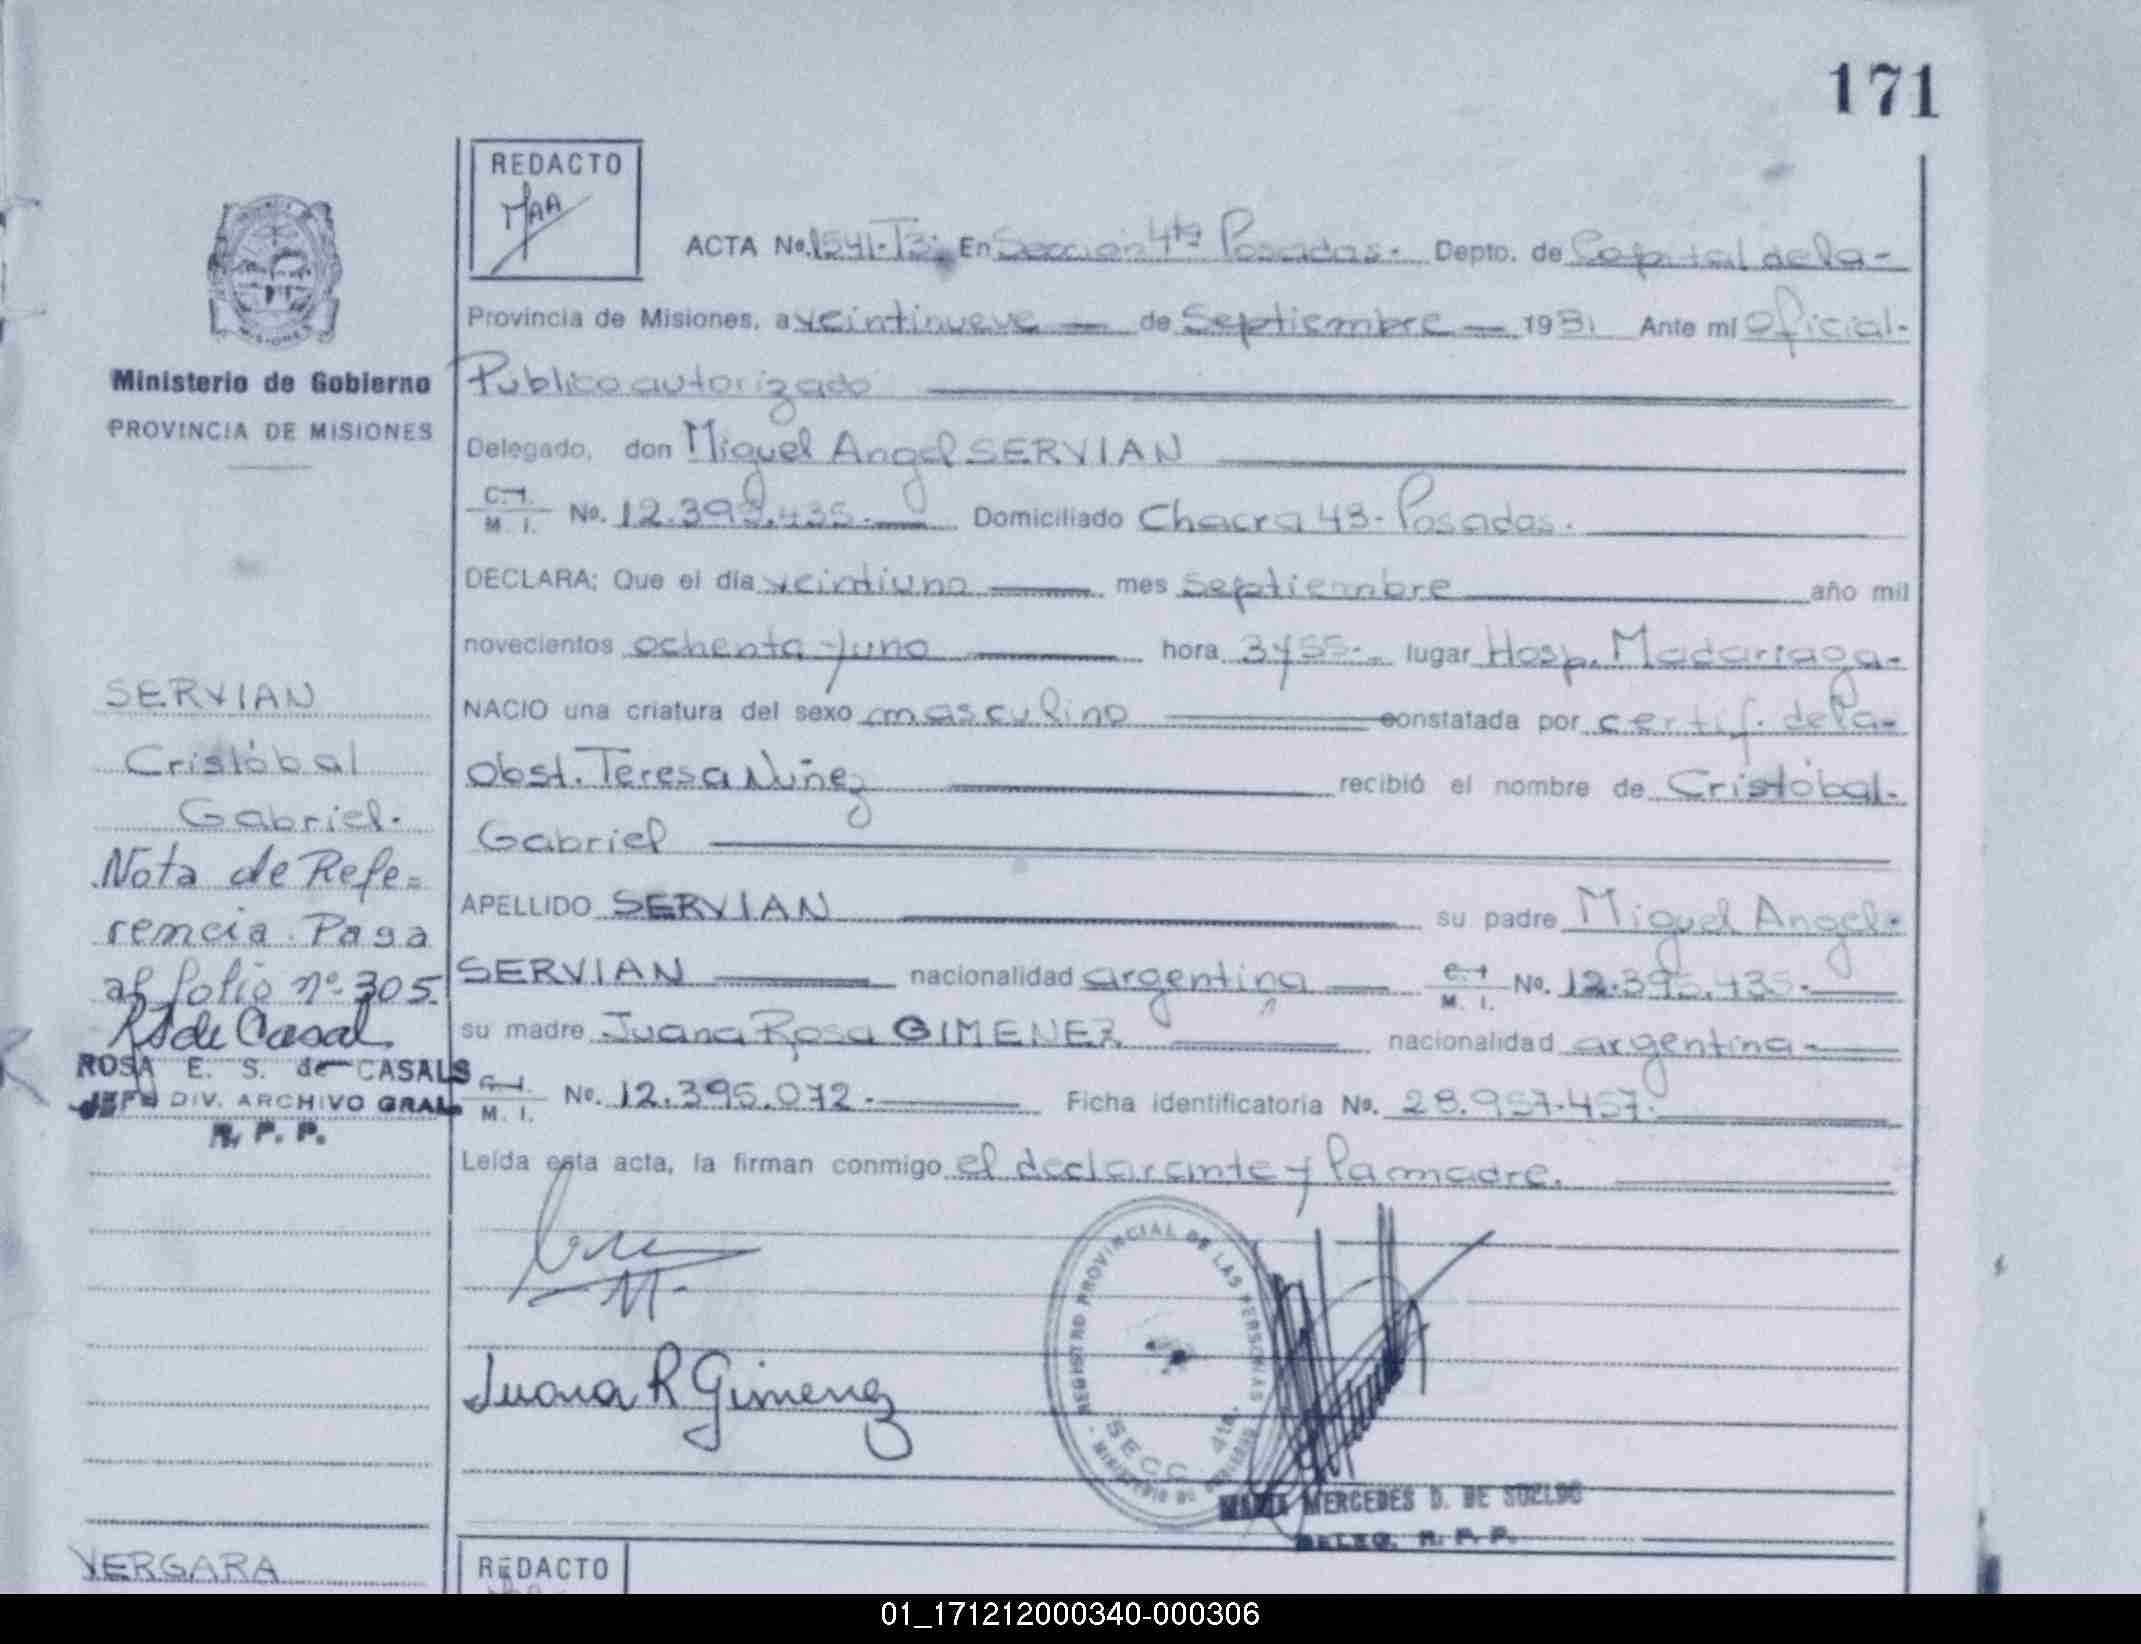 171
REDACTO
MAA
ACTA No. 1541-T3: En Sección 4ta Posadas. Depto. de Capital de la-
Provincia de Misiones, a veintinueve de Septiembre 1981. Ante mí Oficial-
Ministerio de Gobierno
PROVINCIA DE MISIONES
Publico autorizado
Delegado, don Miguel Angel SERVIAN
C.I.
M. I. No. 12.395.435.- Domiciliado Chacra 43- Posadas.
DECLARA; Que el día veintiuno mes Septiembre año mil
novecientos ochenta y uno hora 3y55.- lugar Hosp. Madariaga-
NACIO una criatura del sexo masculino constatada por certif. de la-
Obst. Teresa Nuñez recibió el nombre de Cristóbal-
Gabriel
APELLIDO SERVIAN su padre Miguel Angel-
SERVIAN nacionalidad argentina C.I.
M. I. No. 12.395.435.-
su madre Juana Rosa GIMENEZ nacionalidad argentina-
C.I.
M. I. No. 12.395.072.- Ficha identificatoria No. 28.957.457.-
Leída esta acta, la firman conmigo el declarante y la madre.
SERVIAN
Cristóbal
Gabriel.
Nota de Refe=
rencia. Pasa
al folio nº 305.
RS de Casal
ROSA E. S. de CASALS
JEFE DIV. ARCHIVO GRAL.
R. P. P.
Juana R Gimenez
REGISTRO PROVINCIAL DE LAS PERSONAS
SECC. 4ta.
MINISTERIO DE GOBIERNO
MARIA MERCEDES D. DE SUELDO
DELEG. R. P. P.
VERGARA
REDACTO
01_171212000340-000306